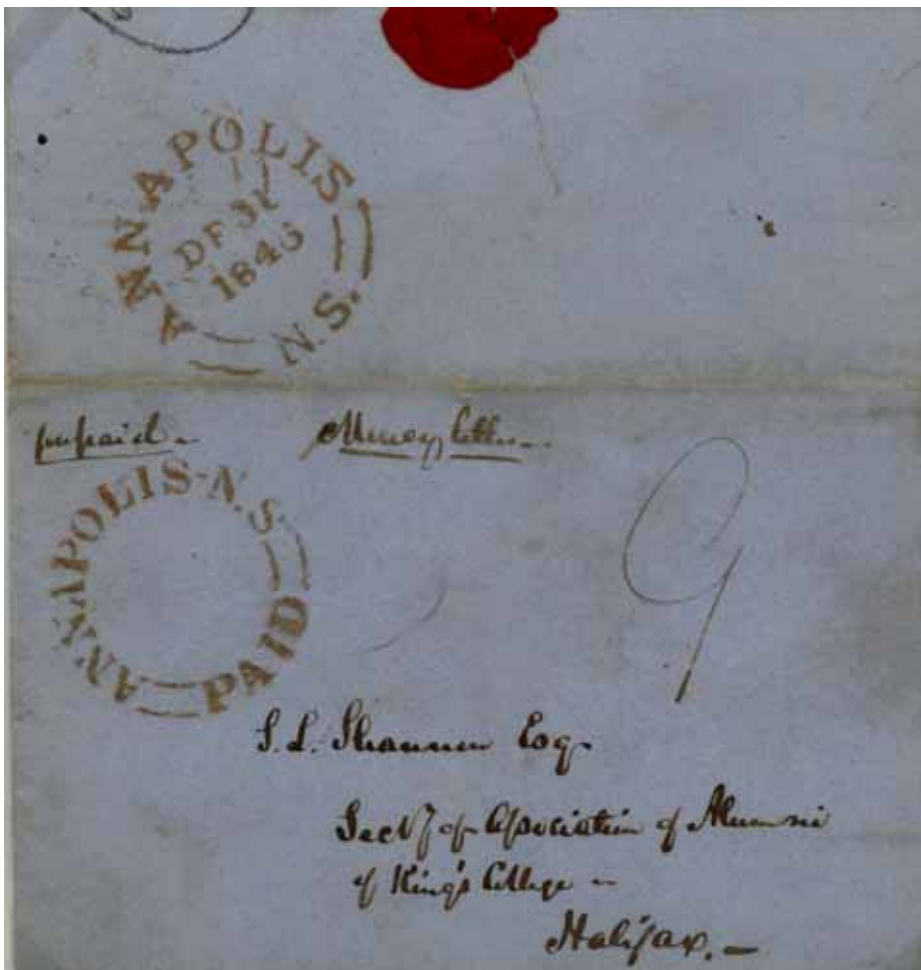 ANNAPOLIS
DE 31
1846
N.S.
prepaid Money letter
ANNAPOLIS-N.S.
PAID
9
S. L. Shannon Esq.
Secty of Association of Alumni
of King's College
Halifax.